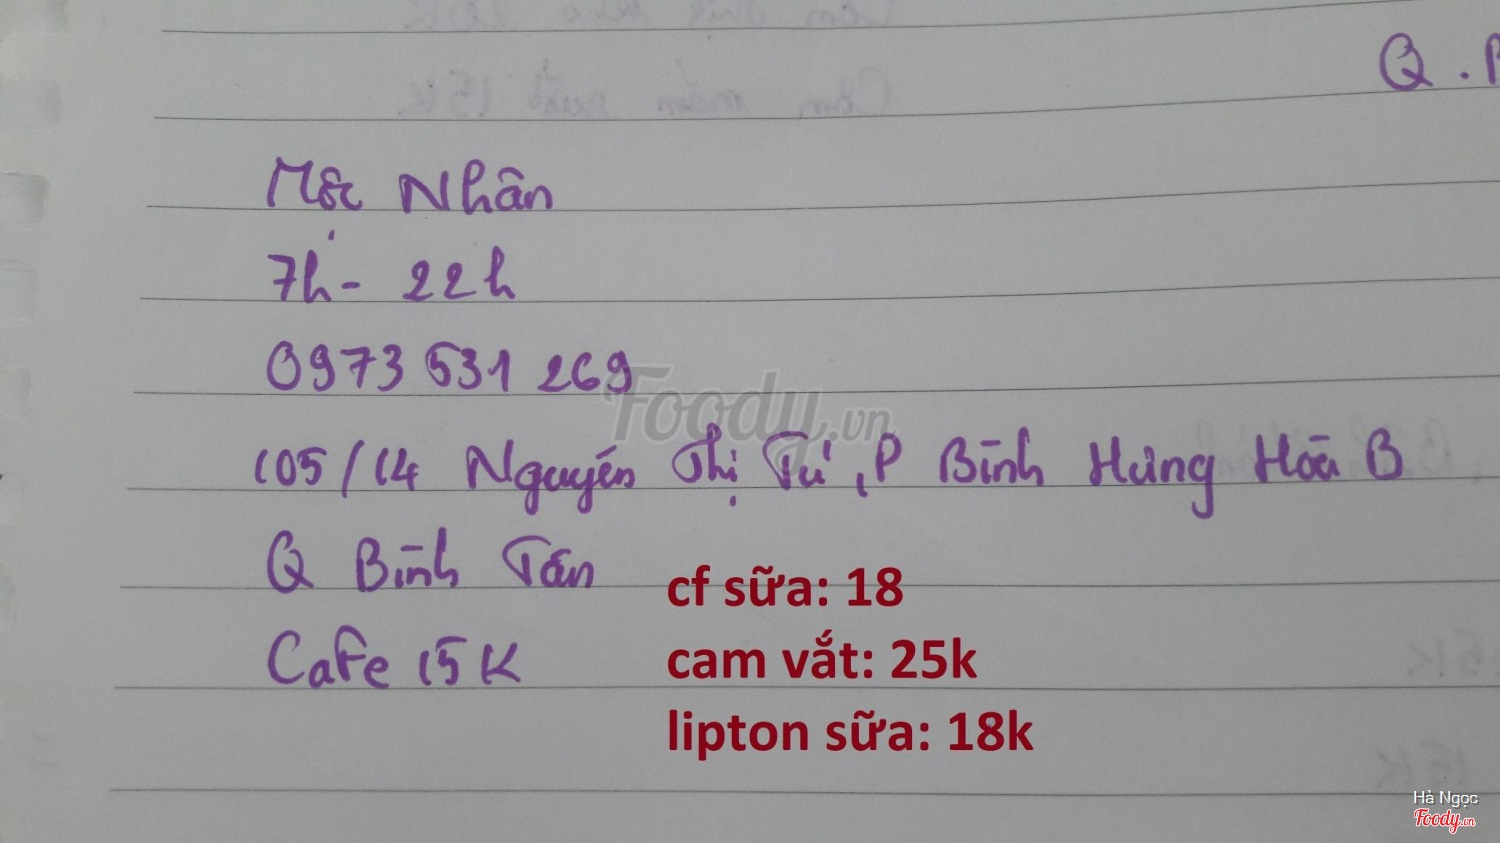 Q . B
Mộc Nhân
7h - 22h
0973 531 269
Foody.vn
105/14 Nguyễn Thị Tú, P Bình Hưng Hòa B
Q Bình Tân
cf sữa: 18
Cafe 15K
cam vắt: 25k
lipton sữa: 18k
Hà Ngọc
Foody.vn